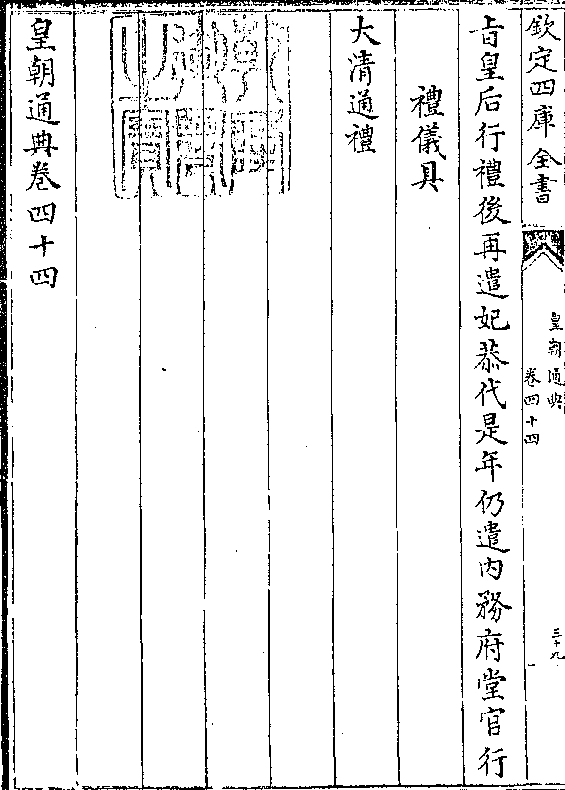 欽定四庫全書
皇朝通典
卷四十四
三十九
旨皇后行禮後再遣妃恭代是年仍遣内務府堂官行
禮儀具
大清通禮
皇朝通典卷四十四